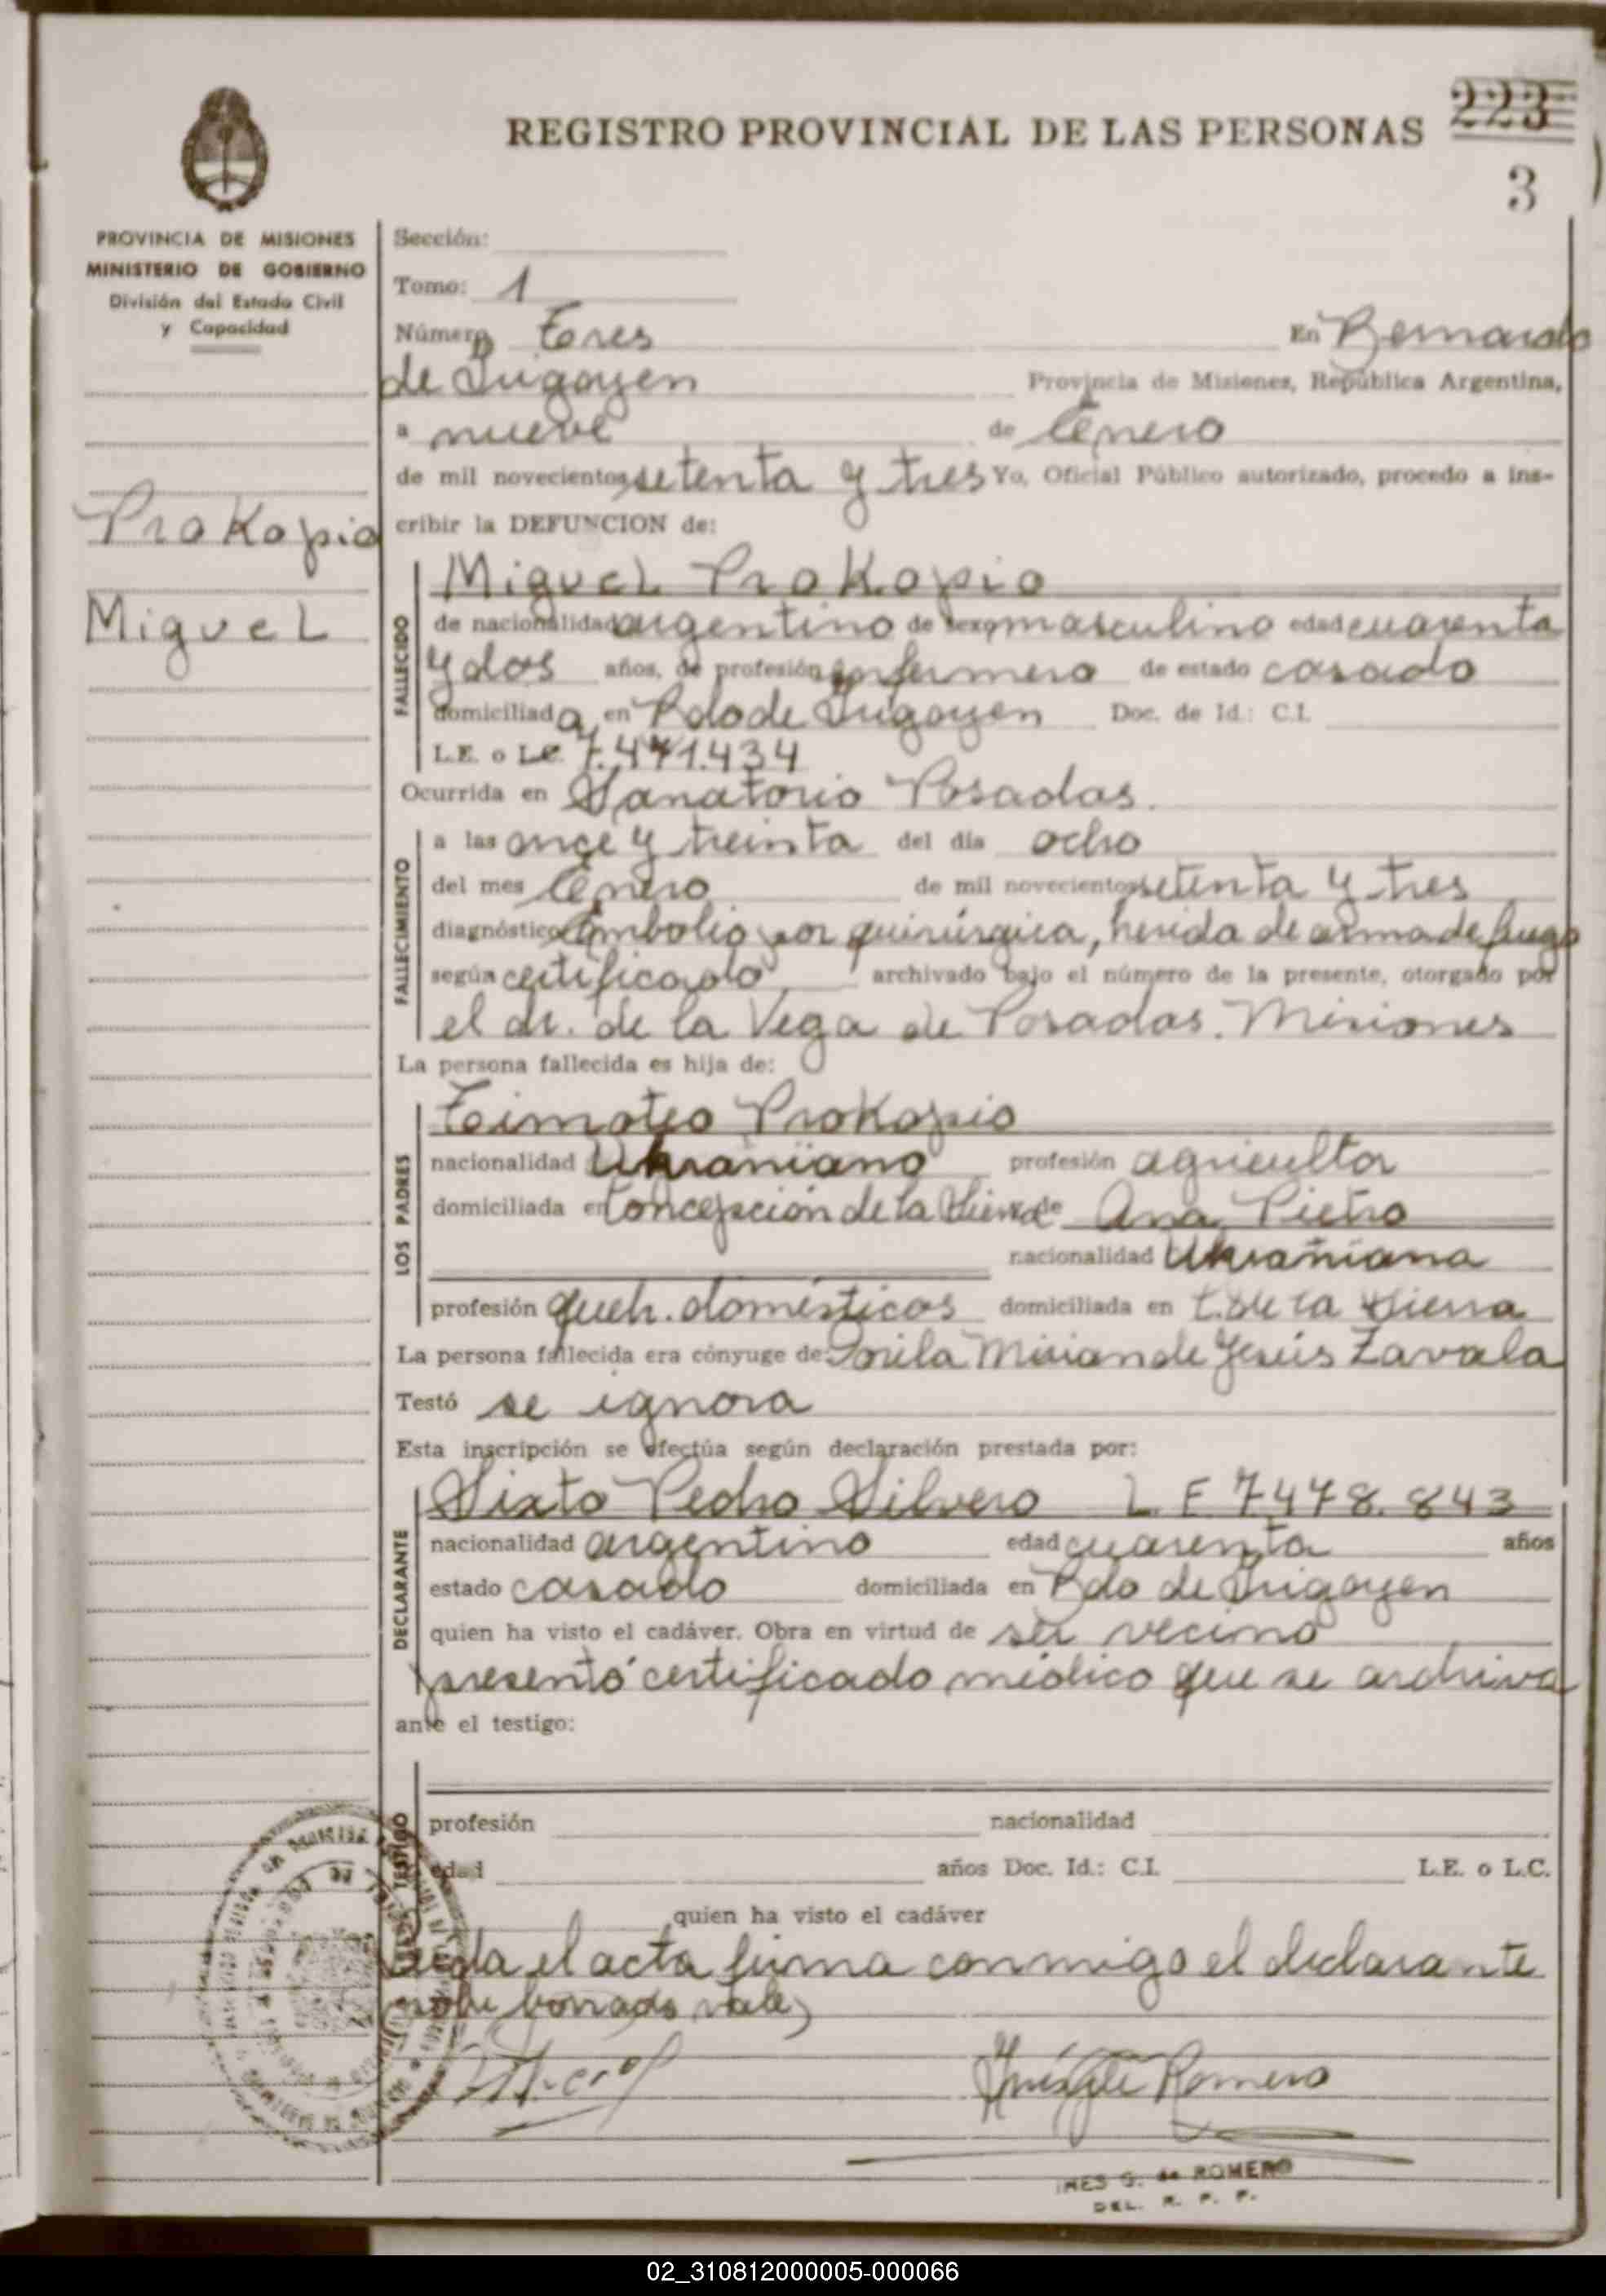 REGISTRO PROVINCIAL DE LAS PERSONAS
223
3
PROVINCIA DE MISIONES
MINISTERIO DE GOBIERNO
División del Estado Civil
y Capacidad
Prokopio
Miguel
Sección:
Tomo: 1
Número Tres En Bernardo
de Irigoyen Provincia de Misiones, República Argentina,
a nueve de Enero
de mil novecientos setenta y tres Yo, Oficial Público autorizado, procedo a ins-
cribir la DEFUNCION de:
FALLECIDO
Miguel Prokopio
de nacionalidad argentino de sexo masculino edad cuarenta
y dos años, de profesión enfermero de estado casado
domiciliada en Bdo de Irigoyen Doc. de Id.: C.I.
L.E. o L.C. 7.471.434
Ocurrida en Sanatorio Posadas.
FALLECIMIENTO
a las once y treinta del día ocho
del mes Enero de mil novecientos setenta y tres
diagnóstico Embolio por quirúrgica, herida de arma de fuego
según certificado archivado bajo el número de la presente, otorgado por
el dr. de la Vega de Posadas. Misiones
La persona fallecida es hija de:
LOS PADRES
Timoteo Prokopio
nacionalidad Ukraniano profesión agricultor
domiciliada en Concepción de la Sierra de Ana Pietro
nacionalidad Ukraniana
profesión queh. domésticos domiciliada en C. de la Sierra
La persona fallecida era cónyuge de: Mirian de Jesús Zavala
Testó se ignora
Esta inscripción se efectúa según declaración prestada por:
DECLARANTE
Sixto Pedro Silvero L E 7.478.843
nacionalidad argentino edad cuarenta años
estado casado domiciliada en Bdo de Irigoyen
quien ha visto el cadáver. Obra en virtud de ser vecino
presentó certificado médico que se archiva
ante el testigo:
TESTIGO
profesión nacionalidad
edad años Doc. Id.: C.I. L.E. o L.C.
quien ha visto el cadáver
Leida el acta firma conmigo el declarante
sobre borrado vale)
Romero
INES G. de ROMERO
DEL. R. P. P.
02_310812000005-000066